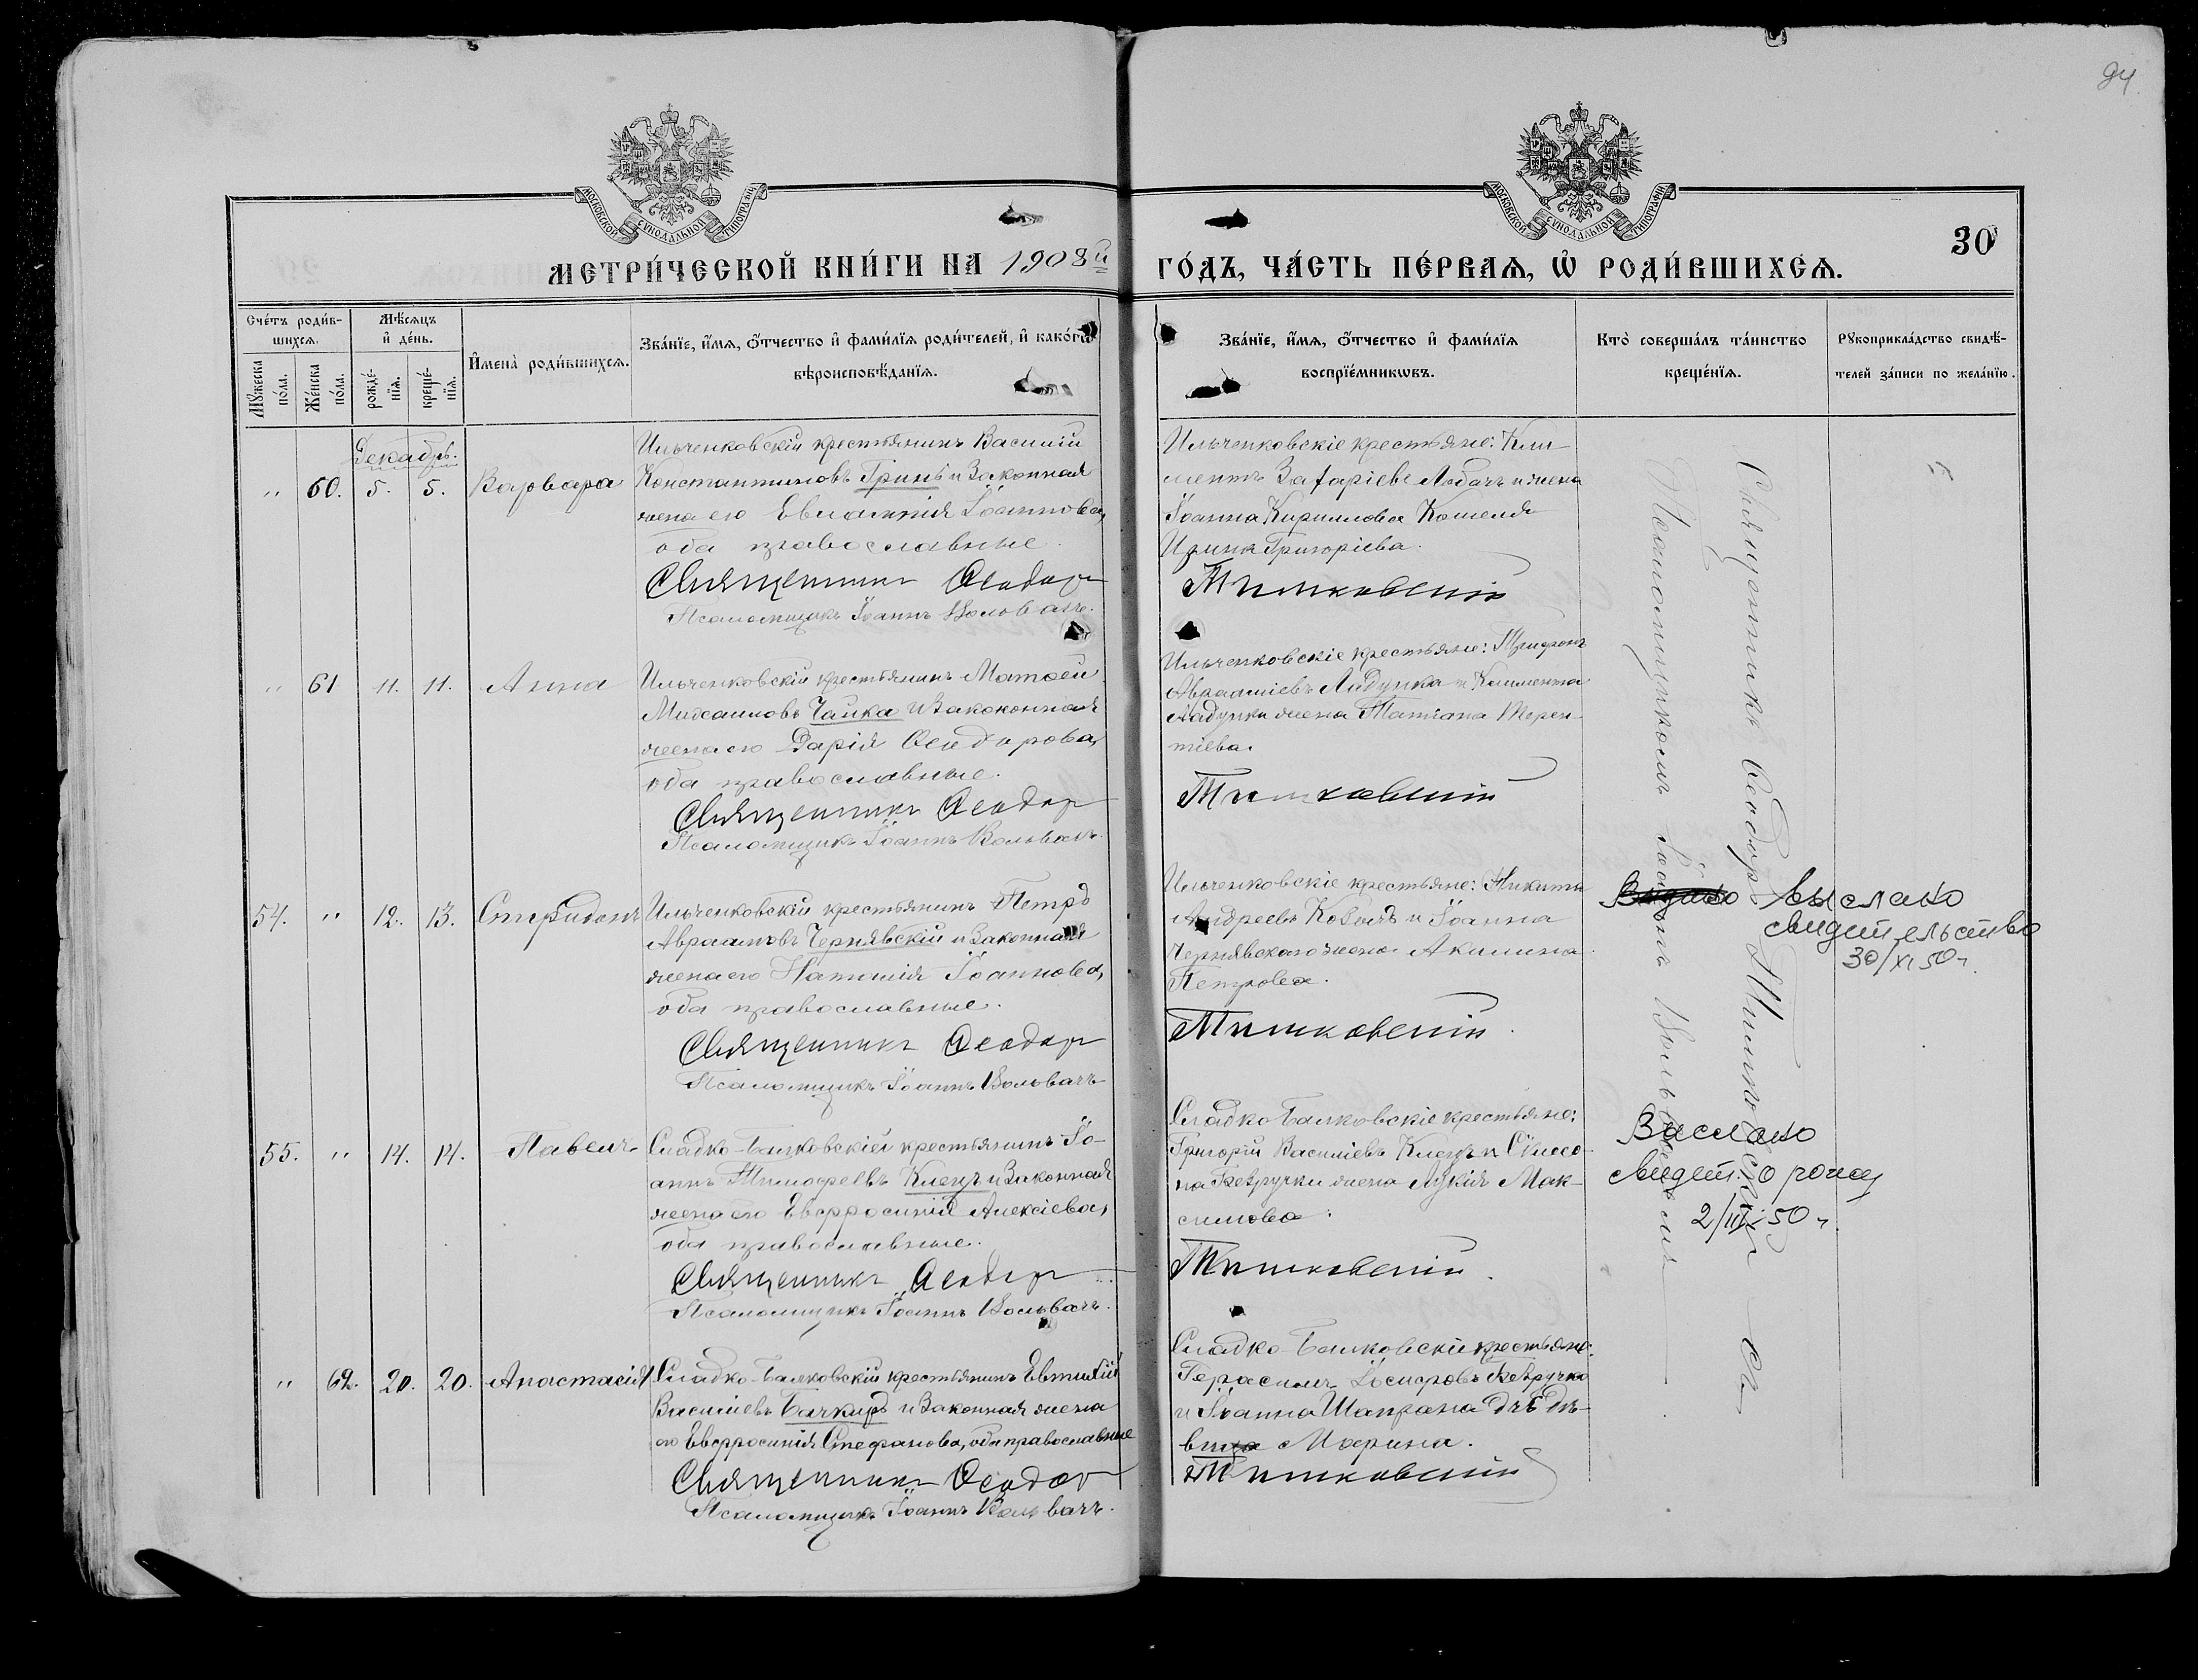 94
30
МЕТРИ́ЧЕСКОЙ КНИ́ГИ НА 1908й ГО́ДЪ, ЧА́СТЬ ПЕ́РВАѦ, Ѡ҆ РОДИ́ВШИХСѦ.
Сче́тъ роди́в-
шихсѧ.
Мѣ́сѧцъ
и҆ де́нь.
Мꙋ́жеска
по́ла.
Же́нска
по́ла.
рожде́-
нїѧ.
креще́-
нїѧ.
И҆мена̀ роди́вшихсѧ.
Зва́нїе, и҆́мѧ, ѻ҆́тчество и҆ фами́лїѧ роди́телей, и҆ како́гѡ
вѣроисповѣ́данїѧ.
Зва́нїе, и҆́мѧ, ѻ҆́тчество и҆ фами́лїѧ
воспрїе́мникѡвъ.
Кто̀ соверша́лъ та́инство
креще́нїѧ.
Рꙋкоприкла́дство свидѣ́-
телей за́писи по жела́нїю.
Декабрь.
" 60. 5. 5. Варвара
Ильченковскій крестьянинъ Василій
Константиновъ Гринь и законная
жена его Евлампія Іоаннова,
оба православные.
Священникъ Ѳеодоръ
Псаломщикъ Іоаннъ
Ильченковскіе крестьяне: Кли-
ментъ и жена
Іоанна Кириллова
Ирина Григоріева.
Тимковскій
" 61 11. 11. Анна
Ильченковскій крестьянинъ Матѳей
Чайка и законная
жена его Дарія Ѳеодорова,
оба православные.
Священникъ Ѳеодоръ
Псаломщикъ Іоаннъ
Ильченковскіе крестьяне: Трифонъ
Аврааміевъ и Климента
жена Татіана Терен-
тіева.
Тимковскій
54. " 12. 13. Спиридонъ
Ильченковскій крестьянинъ Петръ
Авраамовъ Чернявскій и законная
жена его Наталія Іоаннова,
оба православные.
Священникъ Ѳеодоръ
Псаломщикъ Іоаннъ
Ильченковскіе крестьяне: Никита
Андреевъ и Іоанна
Чернявскаго жена Акилина
Петрова.
Тимковскій
выслано
свидетельство
30/XI 50 г.
55. " 14. 14. Павелъ
Сладко-Балковскій крестьянинъ Іо-
аннъ Тимоѳеевъ Клецъ и законная
жена его Евфросинія Алексіева,
оба православные.
Священникъ Ѳеодоръ
Псаломщикъ Іоаннъ
Сладко-Балковскіе крестьяне:
Григорій Василіевъ Клецъ и
жена Лукія Мак-
симова.
Тимковскій
Выслано
свидет. о рожд
2/III 50 г.
" 62. 20. 20. Анастасія
Сладко-Балковскій крестьянинъ Евтихій
Василіевъ и законная жена
его Евфросинія Стефанова, оба православные
Священникъ Ѳеодоръ
Псаломщикъ Іоаннъ
Сладко-Балковскіе крестьяне:
Герасимъ Іосифовъ
и Іоанна Шапрана дѣ-
вица Марина.
Тимковскій
Священникъ Ѳеодоръ Тимковскій съ
Псаломщикомъ Іоанномъ